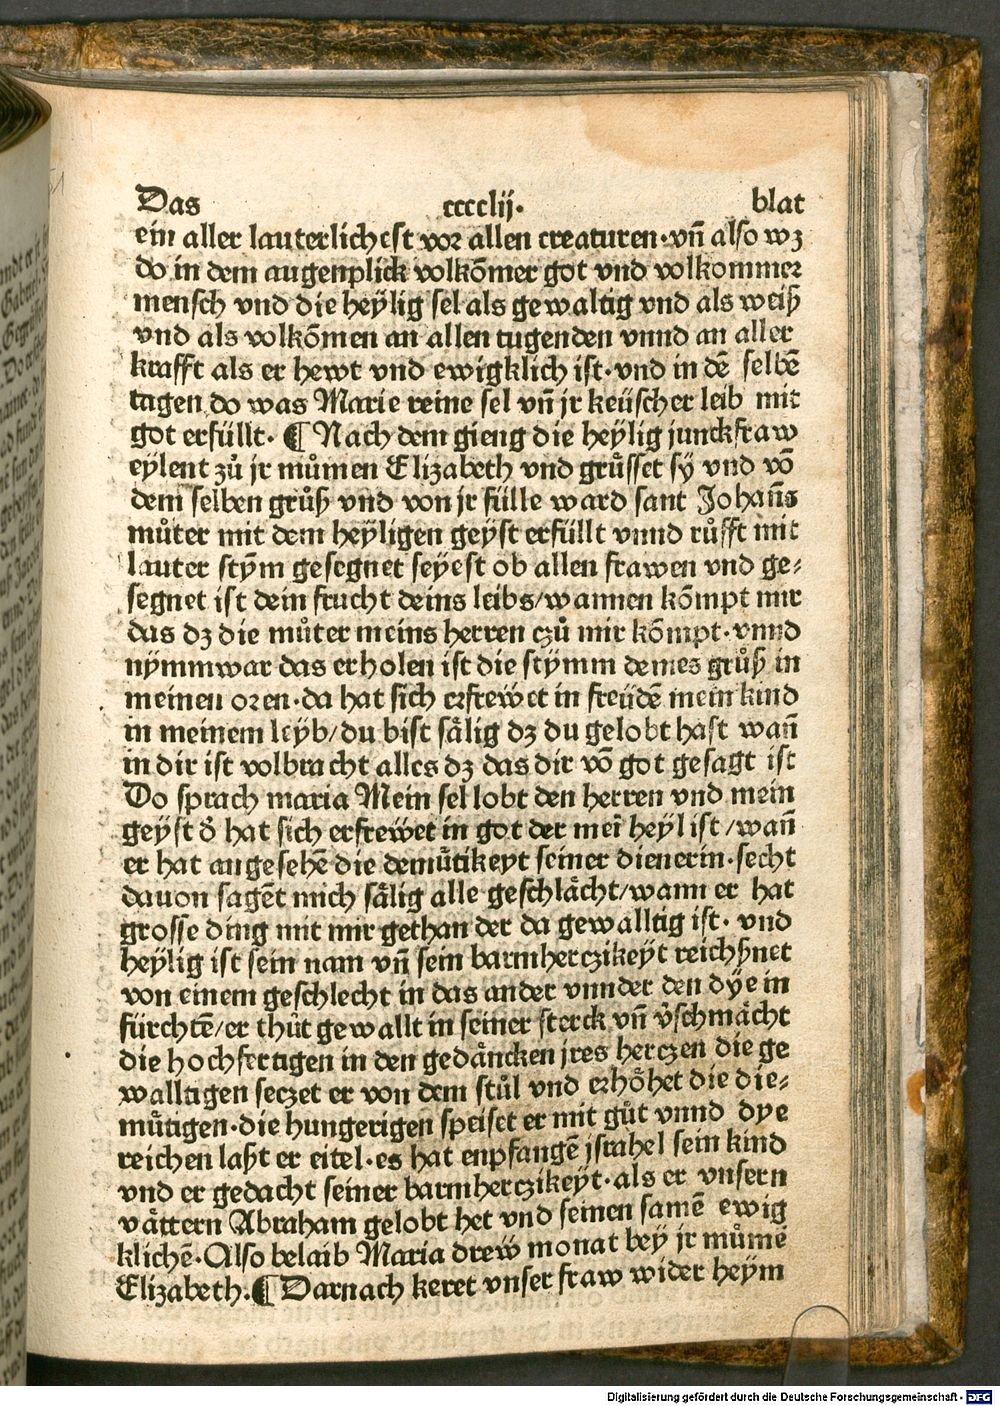 Das cccclij. blat
ein aller lauterlichest vor allen creaturen·vn̄ also wʒ
do in dem augenplick volkōmer got vnd volkommer
mensch vnd die heÿlig sel als gewaltig vnd als weiß
vnd als volkōmen an allen tugenden vnnd an aller
krafft als er hewt vnd ewigklich ist·vnd in dē selbē
tagen do was Marie reine sel vn̄ jr keüscher leib mit
got erfüllt. ¶ Nach dem gieng die heÿlig junckfraw
eÿlent zů jr můmen Elizabeth vnd grůsset sÿ vnd vō
dem selben grůß vnd von jr fülle ward sant Johan̄s
můter mit dem heÿligen geÿst erfüllt vnnd růfft mit
lauter stÿm gesegnet seÿest ob allen frawen vnd ge⸗
segnet ist dein frucht deins leibs/wannen kōmpt mir
das dʒ die můter meins herren czů mir kōmpt·vnnd
nÿmmwar das erholen ist die stÿmm deines grůß in
meinen oren·da hat sich erfrewet in freüdē mein kind
in meinem leÿb/du bist sålig dʒ du gelobt hast wan̄
in dir ist volbracht alles dʒ das dir vō got gesagt ist
Do sprach maria Mein sel lobt den herren vnd mein
geÿst d̓ hat sich erfrewet in got der mein̄ heÿl ist/wan̄
er hat angesehē die demůtikeyt seiner dienerin·secht
dauon sagēt mich sålig alle geschlåcht/wann er hat
grosse ding mit mir gethan der da gewalltig ist· vnd
heÿlig ist sein nam vn̄ sein barmherczikeÿt reichßnet
von einem geschlecht in das ander vnnder den dÿe in
fürchtē/er thůt gewallt in seiner sterck vn̄ v̓schmåcht
die hochfertigen in den gedåncken jres herczen die ge
walltigen seczet er von dem stůl vnd erhȯhet die die⸗
můtigen·die hungerigen speiset er mit gůt vnnd dye
reichen laßt er eitel·es hat enpfangē jsrahel sein kind
vnd er gedacht seiner barmherczikeÿt·als er vnsern
våttern Abraham gelobt het vnd seinen samē ewig
klichē·Also belaib Maria drew monat bey jr můmē
Elizabeth.¶ Darnach keret vnser fraw wider heÿm
Digitalisierung gefördert durch die Deutsche Forschungsgemeinschaft - DFG